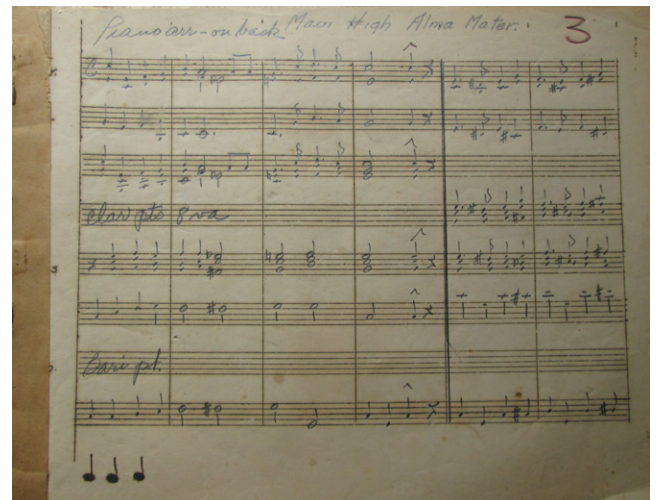 Piano arr - on back. Maui High Alma Mater. 3
Clar pts 8va
Bari pt.